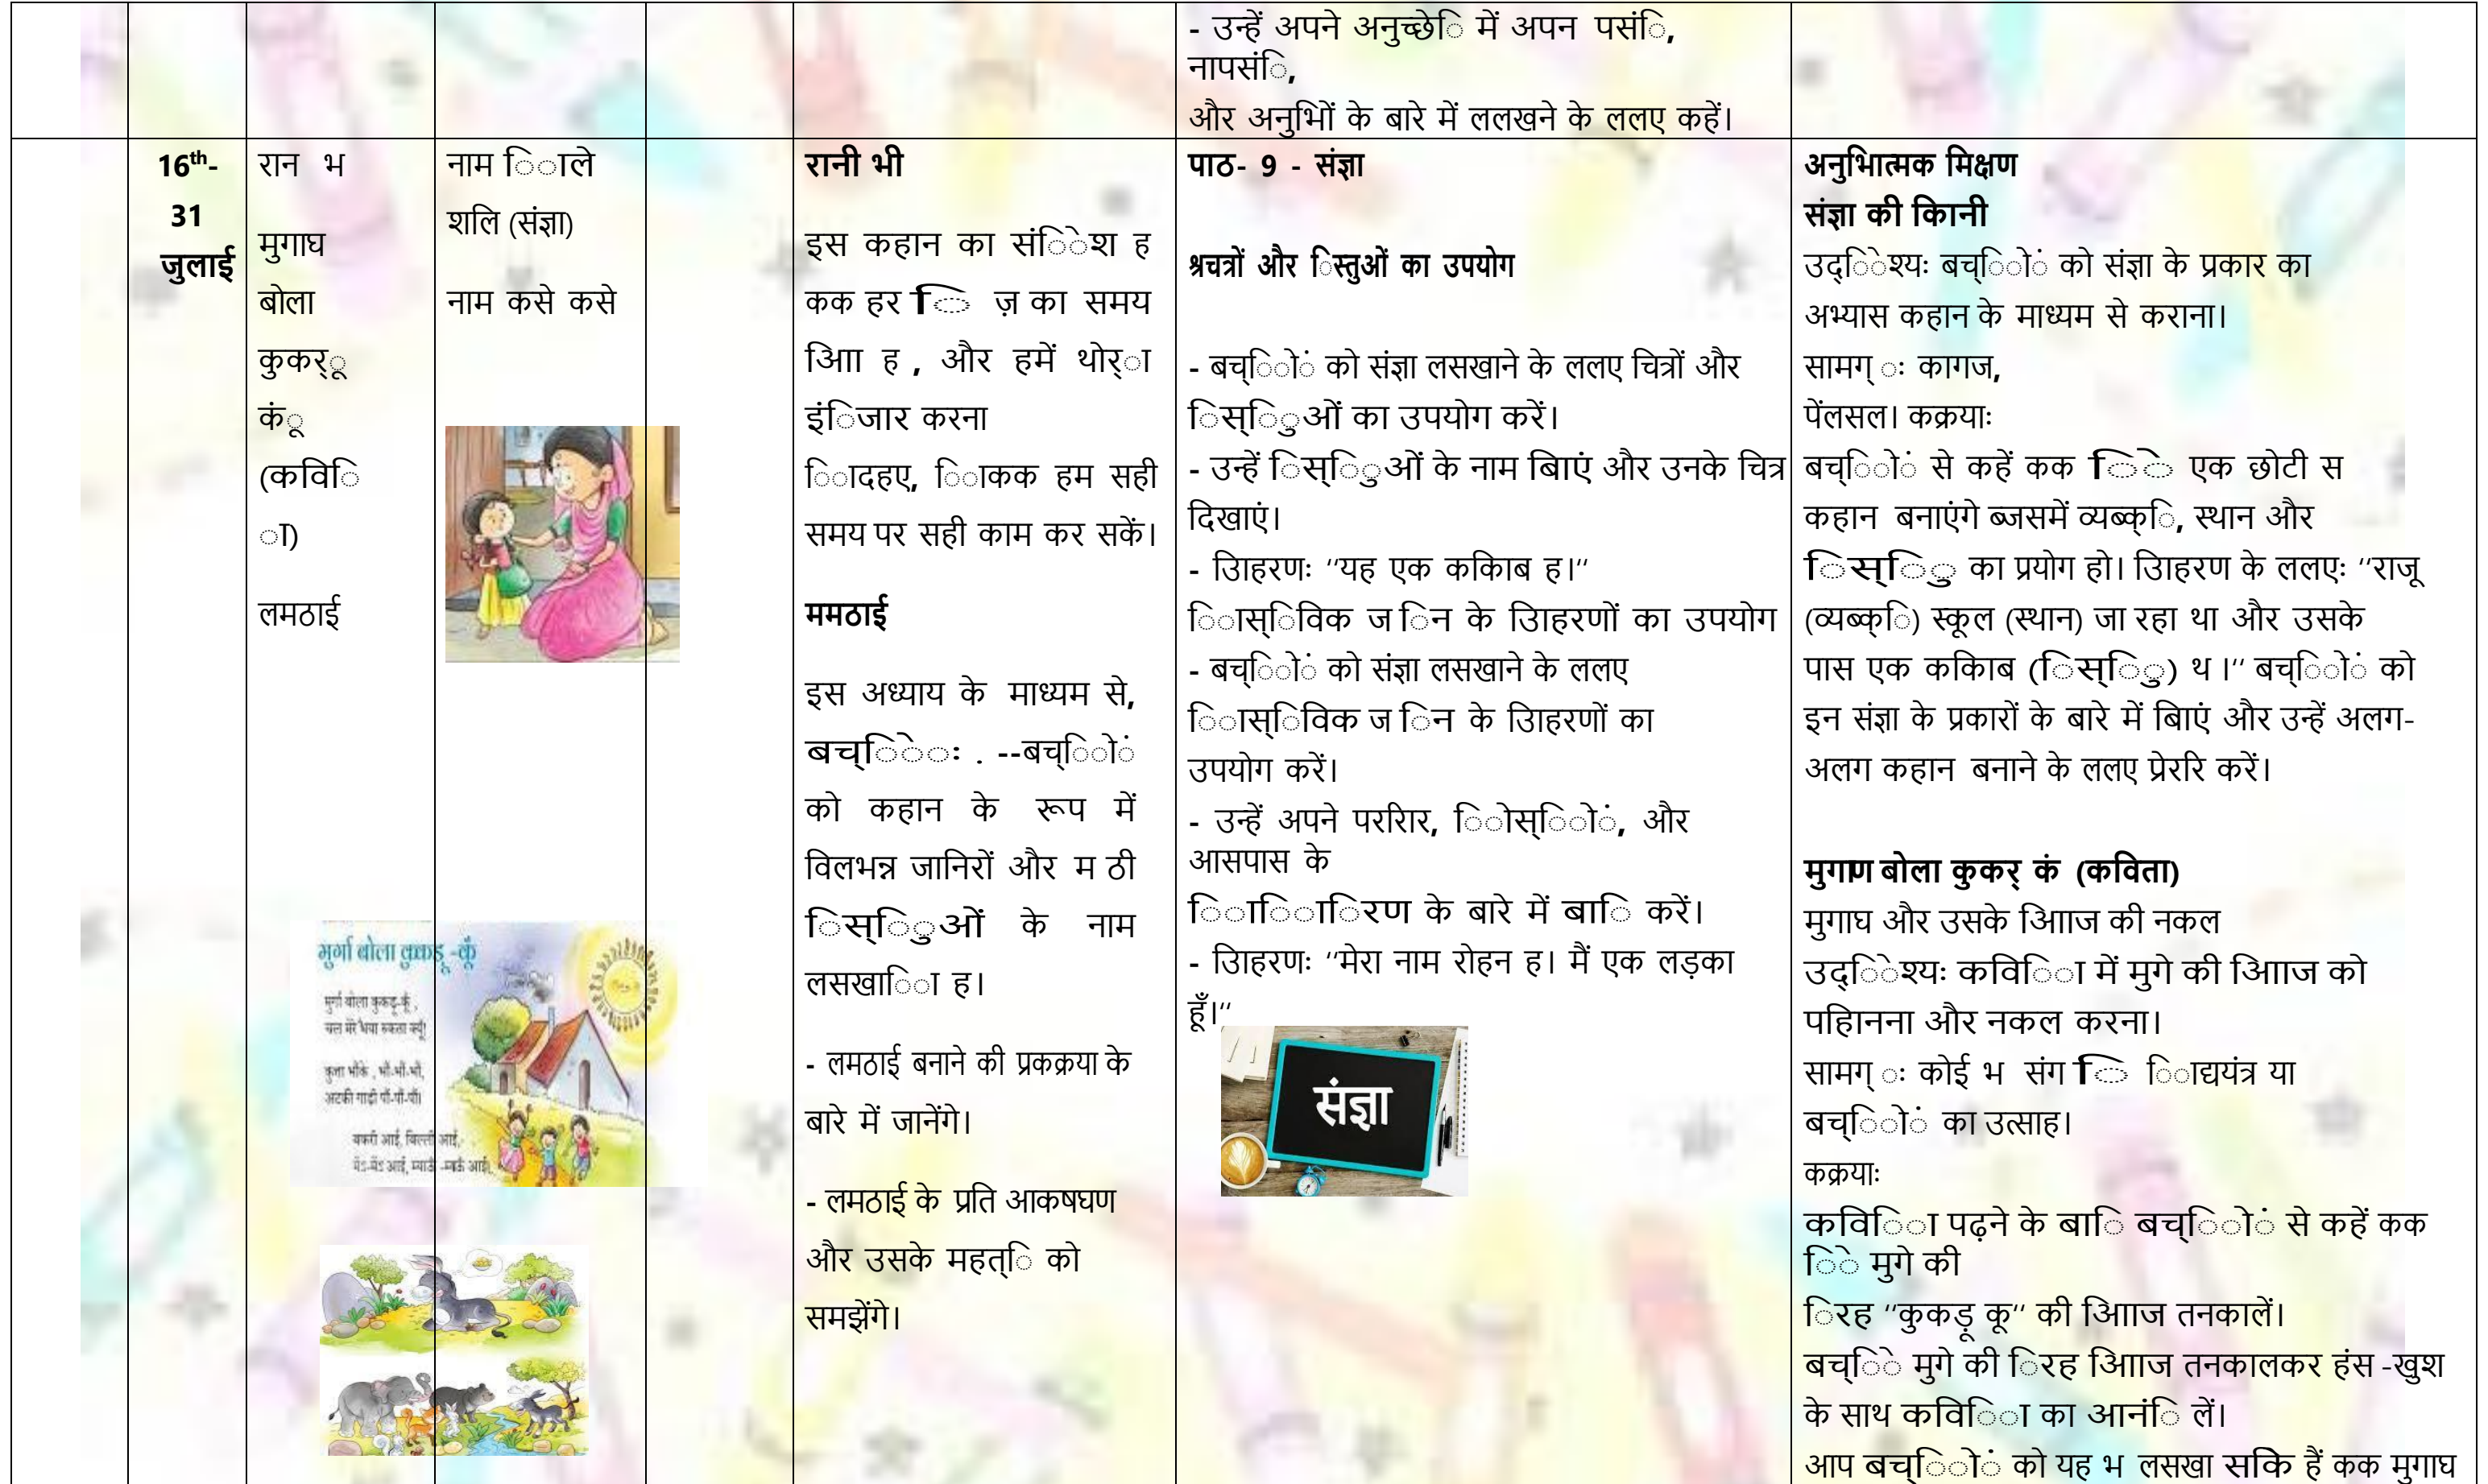 - उन्हें अपने अनुच्छेि में अपन पसंि,
नापसंि,
और अनुभिों के बारे में ललखने के ललए कहें।
16th-
31
जुलाई
रान भ
मुगाघ
बोला
कुकर्ू
कंू
(कविि
ा)
लमठाई
नाम िाले
शलि (संज्ञा)
नाम कसे कसे
मुर्गा बोला कुकड़ू-कूँ
मुर्गा बोला कुकड़ू-कूँ,
चल मेरे भैया रुकता क्यूँ!
कुत्ता भौंके, भौं-भौं-भौं,
अटकी गाड़ी पौं-पौं-पौं।
बकरी आई, बिल्ली आई,
मेंऽ-मेंऽ आई, म्याऊँ-म्याऊँ आई।
रानी भी
इस कहान का संिेश ह
कक हर ि ज़ का समय
आिा ह , और हमें थोर्ा
इंिजार करना
िादहए, िाकक हम सही
समय पर सही काम कर सकें।
ममठाई
इस अध्याय के माध्यम से,
बच्िेः . --बच्िों
को कहान के रूप में
विलभन्न जानिरों और म ठी
िस्िुओं के नाम
लसखािा ह।
- लमठाई बनाने की प्रकक्रया के
बारे में जानेंगे।
- लमठाई के प्रति आकषघण
और उसके महत्ि को
समझेंगे।
पाठ- 9 - संज्ञा
श्रचत्रों और िस्तुओं का उपयोग
- बच्िों को संज्ञा लसखाने के ललए चित्रों और
िस्िुओं का उपयोग करें।
- उन्हें िस्िुओं के नाम बिाएं और उनके चित्र
दिखाएं।
- उिाहरणः “यह एक ककिाब ह।“
िास्िविक ज िन के उिाहरणों का उपयोग
- बच्िों को संज्ञा लसखाने के ललए
िास्िविक ज िन के उिाहरणों का
उपयोग करें।
- उन्हें अपने पररिार, िोस्िों, और
आसपास के
िािािरण के बारे में बाि करें।
- उिाहरणः “मेरा नाम रोहन ह। मैं एक लड़का
हूँ।“
संज्ञा
अनुभिात्मक मिक्षण
संज्ञा की किानी
उद्िेश्यः बच्िों को संज्ञा के प्रकार का
अभ्यास कहान के माध्यम से कराना।
सामग् ः कागज,
पेंलसल। कक्रयाः
बच्िों से कहें कक िे एक छोटी स
कहान बनाएंगे ब्जसमें व्यब्क्ि, स्थान और
िस्िु का प्रयोग हो। उिाहरण के ललएः “राजू
(व्यब्क्ि) स्कूल (स्थान) जा रहा था और उसके
पास एक ककिाब (िस्िु) थ ।“ बच्िों को
इन संज्ञा के प्रकारों के बारे में बिाएं और उन्हें अलग-
अलग कहान बनाने के ललए प्रेररि करें।
मुगाण बोला कुकर् कं (कविता)
मुगाघ और उसके आिाज की नकल
उद्िेश्यः कवििा में मुगे की आिाज को
पहिानना और नकल करना।
सामग् ः कोई भ संग ि िाद्ययंत्र या
बच्िों का उत्साह।
कक्रयाः
कवििा पढ़ने के बाि बच्िों से कहें कक
िे मुगे की
िरह “कुकड़ू कू“ की आिाज तनकालें।
बच्िे मुगे की िरह आिाज तनकालकर हंस -खुश
के साथ कवििा का आनंि लें।
आप बच्िों को यह भ लसखा सकिे हैं कक मुगाघ